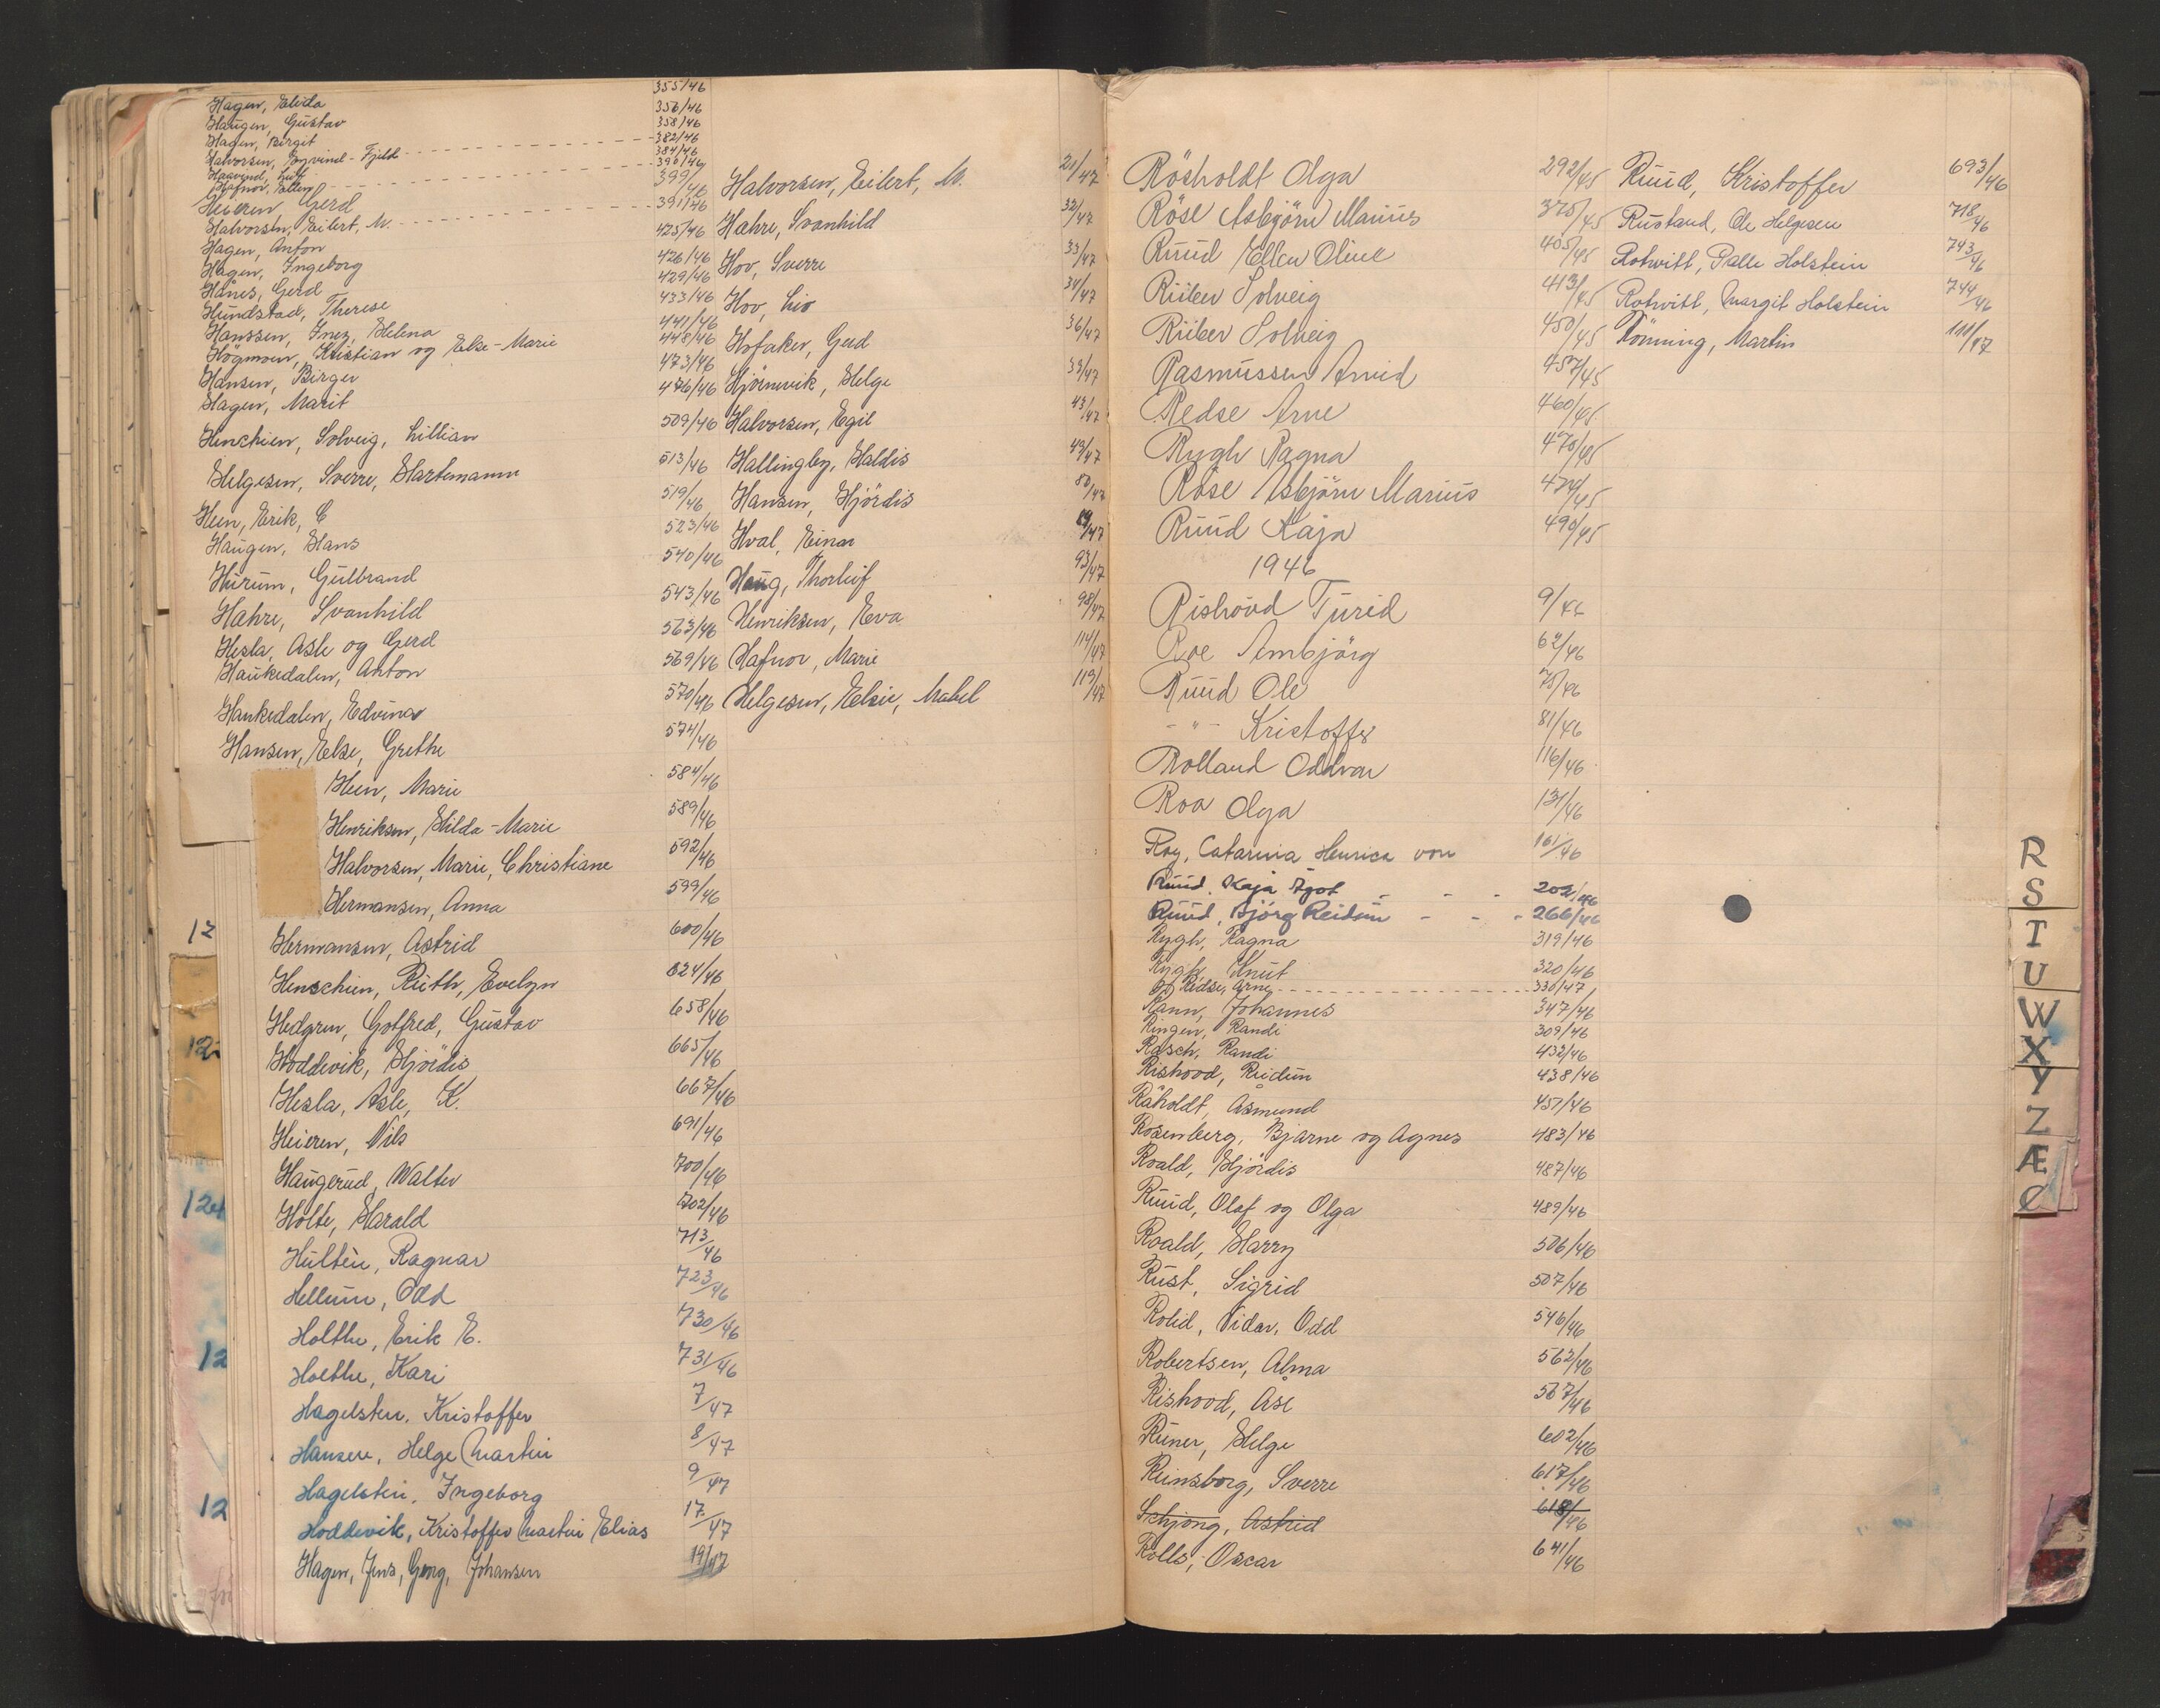 355/46
Hagen, Elida 356/46
Haugen, Gustav 358/46
Hagen, Birgit 382/46
Halvorsen, Øyvind-Fjeld 384/46
396/46
Hafnor, Ellen 399/46
Heieren Gerd 391/46
Halvorsen, Eilert, M. 425/46
Hagen, Anton 426/46
Hagen, Ingeborg 429/46
Hånes, Gerd 433/46
Hundstad, Therese 441/46
Hanssen, Inez, Helena 448/46
Högmoen, Kristian og Else-Marie 473/46
Hansen, Birger 476/46
Hagen, Marit
Henschien, Solveig, Lillian 509/46
Helgesen, Sverre, Hartemann 513/46
Heen, Erik, E 519/46
Haugen, Hans 523/46
Hurum, Gulbrand 540/46
Hahre, Svanhild 543/46
Hesla, Asle og Gerd 563/46
Haukedalen, Anton 569/46
Haukedalen, Edvina 570/46
Hansen, Else, Grethe 574/46
Heen, Marie 584/46
Henriksen, Hilda-Marie 589/46
Halvorsen, Marie, Christiane 592/46
Hermansen, Anna 599/46
Hermansen, Astrid 600/46
Henschien, Ruth, Evelyn 624/46
Hedgren, Gotfred, Gustav 658/46
Hoddevik, Hjördis 665/46
Hesla, Asle, K. 667/46
Heieren, Nils 691/46
Haugerud, Walter 700/46
Holte, Harald 702/46
Hultén, Ragnar 713/46
Hellum, Odd 723/46
Holthe, Erik E. 730/46
Holthe, Kari 731/46
Hagelsten, Kristoffer 7/47
Hansen, Helge Martin 8/47
Hagelsten, Ingeborg 9/47
Hoddevik, Kristoffer Martin Elias 17/47
Hagen, Jens, Georg, Johansen 19/47
12
12
124
12
12
Halvorsen, Eilert, M. 21/47
Hahre, Svanhild 32/47
Hov, Sverre 33/47
Hov, Liv 34/47
Hofaker, Gerd 36/47
Hjörnevik, Helge 39/47
Halvorsen, Egil 43/47
Hallingby, Haldis 49/47
Hansen, Hjördis 80/47
Hval, Einar 89/47
Haug, Thorleif 93/47
Henriksen, Eva 98/47
Hafnor, Marie 114/47
Helgesen, Elsie, Mabel 119/47
Rösholdt Olga 292/45
Röse Asbjörn Marius 375/45
Ruud Ellen Oline 405/45
Riiber Solveig 413/45
Riiber Solveig 450/45
Rasmussen Arvid 457/45
Redse Arne 460/45
Rygh Ragna 470/45
Röse Asbjörn Marius 474/45
Ruud Kaja 490/45
1946
Rishövd Turid 9/46
Roe Arnbjörg 62/46
Ruud Ole 75/46
- " - Kristoffer 81/46
Rolland Oddvar 116/46
Roa Olga 131/46
Roy, Catarina Henrica von 161/46
Ruud, Kaja Ågot - - - 202/46
Ruud, Bjørg Reidun - - - 266/46
Rygh, Ragna 319/46
Rygh, Knut 320/46
Redse, Arne 330/47
Rann, Johannes 347/46
Ringen, Randi 309/46
Rasch, Randi 432/46
Rishovd, Reidun 438/46
Råholdt, Åsmund 457/46
Rosenberg, Bjarne og Agnes 483/46
Roald, Hjördis 487/46
Ruud, Olaf og Olga 489/46
Roald, Harry 506/46
Rust, Sigrid 507/46
Rolid, Vidar, Odd 546/46
Robertsen, Alma 562/46
Rishovd, Åse 567/46
Runer, Helge 602/46
Reinsborg, Sverre 617/46
Schjong, Astrid 618/46
Rolls, Oscar 641/46
Ruud, Kristoffer 693/46
Rustand, Ole Helgesen 718/46
Rotwitt, Palle Holstein 743/46
Rotwitt, Margit Holstein 744/46
Rönning, Martin 111/47
R
S
T
U
W
X
Y
Z
Æ
Ø